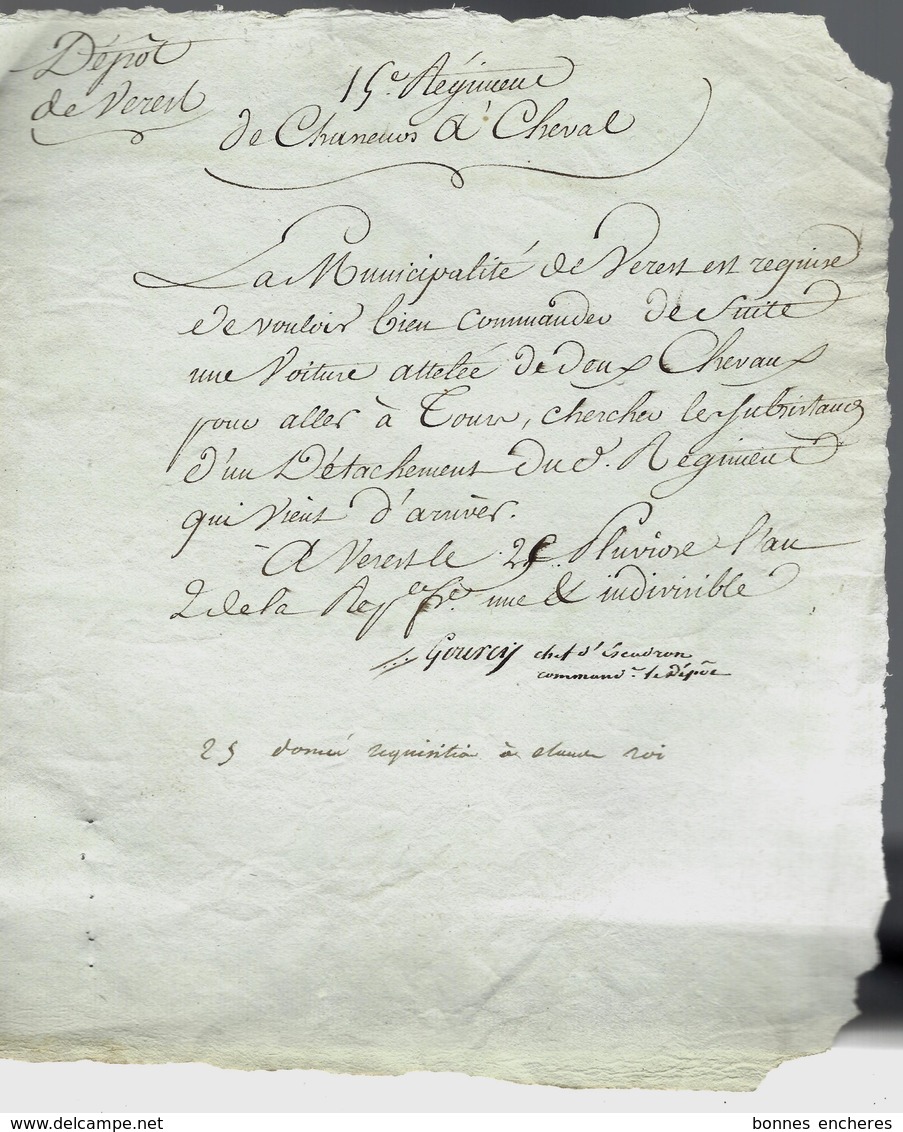 Dépôt
de Verest
15e Régiment
de Chasseurs à Cheval
La Municipalité de Verest est requise
de vouloir bien commander de suite
une Voiture attelée de deux Chevaux
pour aller à Tours, chercher les subsistances
d'un Détachement du d. Regiment
qui vient d'arriver.
A Verest le 25 Pluviose l'an
2 de la Rep.e fr.e une & indivisible
chef d'éscadron
command.t le dépôt
25 donné requisition à claude roi
delcampe.net
bonnes encheres